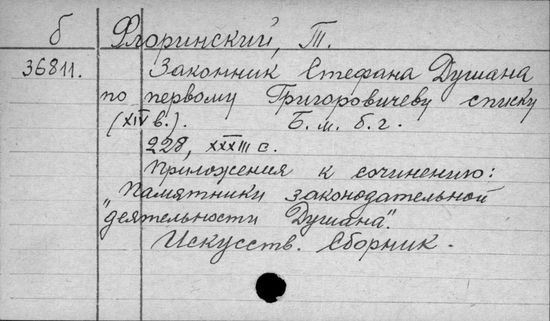 б Флоринский, Т.
36811. Законник Стефана Душана
по первому Григоровичеву списку
(XIV в.). Б. м. б. г.
228, XXXIII с.
Приложения к сочинению:
"Памятники законодательной
деятельности Душана".
Искусств. Сборник.